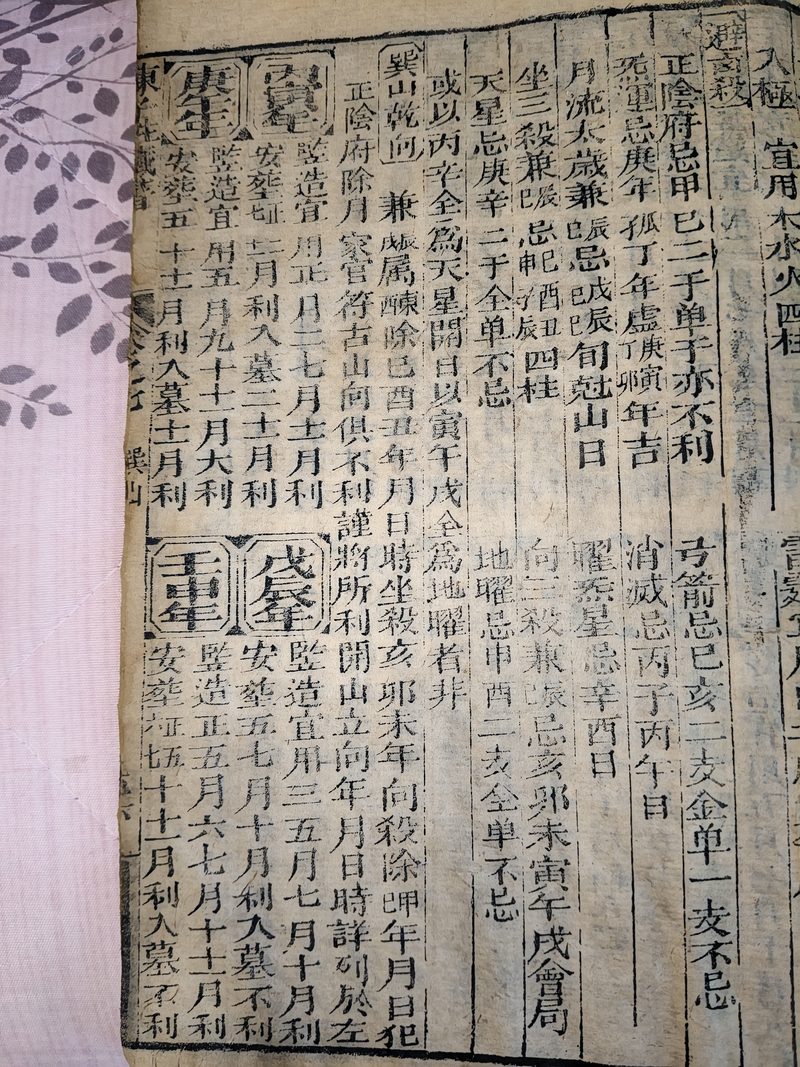 八極 宜用木水火四柱
避玄殺
正陰府忌甲巳二于单于亦不利
弓箭忌巳亥二支金单一支不忌
死運忌庚年孤丁年虚庚寅丁卯年吉
消滅忌丙子丙午日
月流太歲兼辰巳忌戊辰巳巳旬尅山日
曜炁星忌辛酉日
坐三殺兼辰巳忌巳酉丑申子辰四柱
向三殺兼辰忌亥卯未寅午戌會局
天星忌庚辛二于全单不忌
地曜忌申酉二支全单不忌
或以丙辛全爲天星開日以寅午戌全爲地曜者非
巽山乾向 兼辰戌属除巳酉丑年月日時坐殺亥卯未年向殺除甲年月日犯
正陰府除月家官符古山向俱不利謹將所利開山立向年月日時詳列於左
丙寅年
竪造宜用正月二七月十一月利
安葬十二月利入墓二十一月利
戊辰年
竪造宜用三五月七月十月利
安葬五七月十月利入墓不利
庚午年
竪造宜用五月九十十一月大利
安葬五十十一月利入墓十一月利
壬申年
竪造正五月六七月十十一月利
安葬五十十一月利入墓不利
巽山